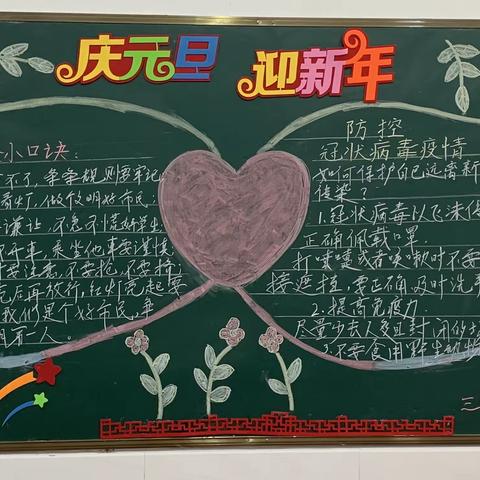 庆元旦 迎新年
小口诀:
不了,条条规则要牢记
看灯,做做明好市民;
谦让,不急不慌好学生
开车,乘坐他车要谨慎
要注意,不要抢,不要挤
亮后再放行,红灯亮起要
我们里个好市民,争
一人。
防控
冠状病毒疫情
如何保护自己远离新
传染?
1.冠状病毒以飞沫传
正确佩戴口罩.
打喷嚏或者咳嗽时不要
接遮挡,要正确,及时洗手
2.提高免疫力.
尽量少去人多且封闭的场
3.不要食用野生动物
三